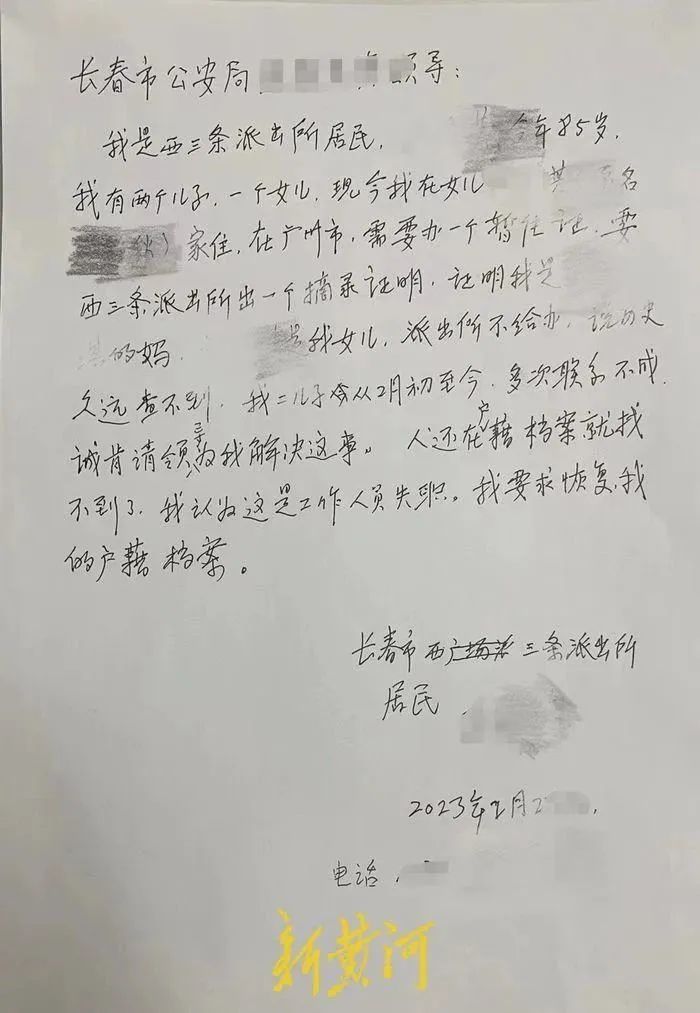 长春市公安局 领导：
我是西三条派出所居民， 今年85岁，
我有两个儿子，一个女儿，现今我在女儿 名
家住，在广州市，需要办一个暂住证，要
西三条派出所出一个摘录证明，证明我是
的妈， 是我女儿，派出所不给办，说历史
久远查不到，我二儿子从2月初至今，多次联系不成，
诚肯请领导为我解决这事。人还在户藉档案就找
不到了，我认为这是工作人员失职。我要求恢复我
的户藉档案。
长春市西三条派出所
居民
2023年2月2
电话，
新黄河